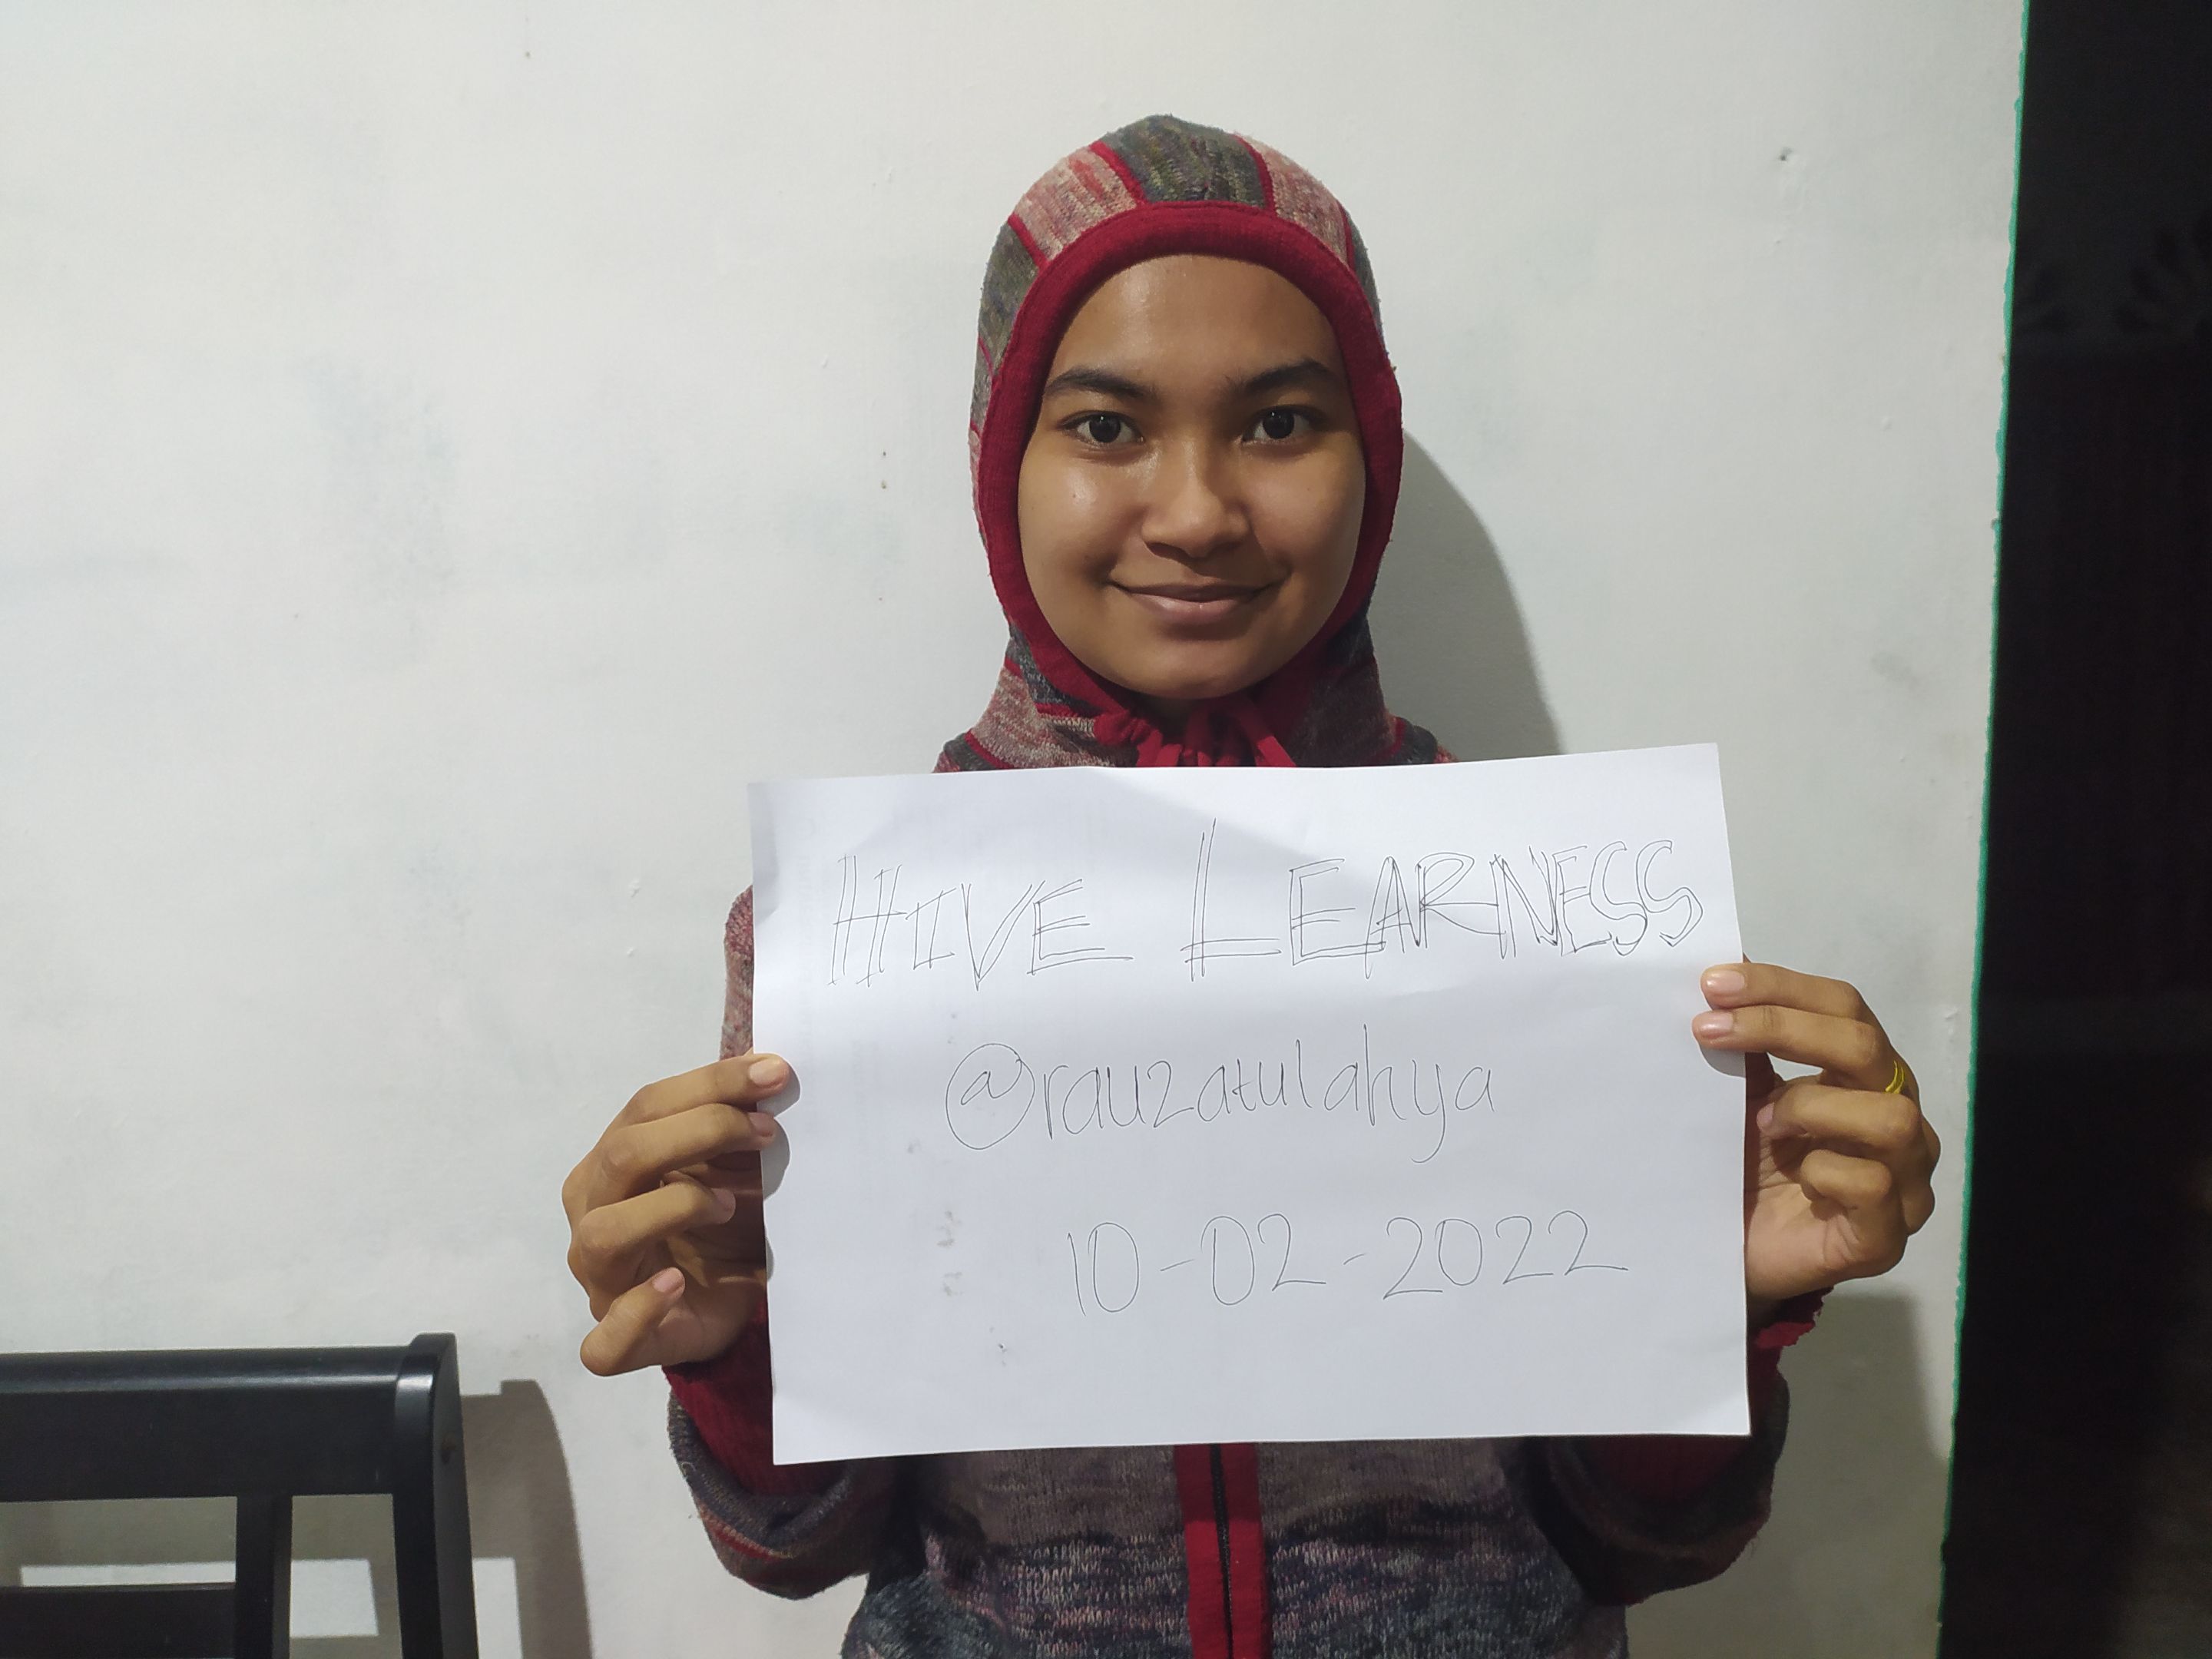 HIVE LEARNESS
@rauzatulahya
10-02-2022